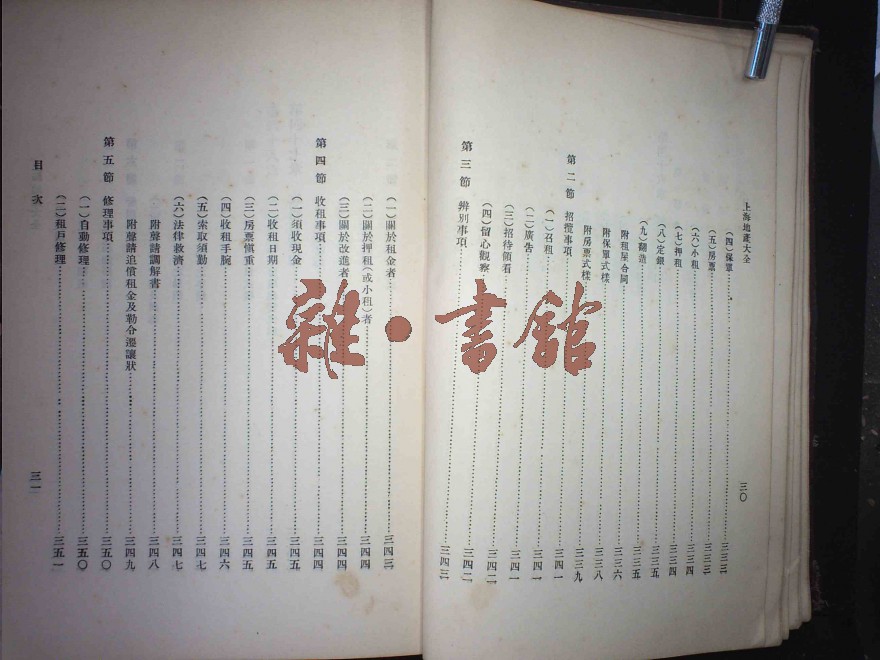 上海地產大全
三〇
（四）保單……三三三
（五）房票……三三三
（六）小租……三三四
（七）押租……三三四
（八）定銀……三三五
（九）轉造……三三五
附租屋合同……三三六
附保單式樣……三三八
附房票式樣……三三九
第二節 招攬事項……三四一
（一）召租……三四一
（二）廣告……三四一
（三）招待領看……三四一
（四）留心觀察……三四二
第三節 辨別事項……三四三
（一）關於租金者……三四三
（二）關於押租（或小租）者……三四四
（三）關於改進者……三四四
第四節 收租事項……三四四
（一）須收現金……三四五
（二）收租日期……三四五
（三）房票慎重……三四五
（四）收租手腕……三四六
（五）索取須勤……三四七
（六）法律救濟……三四七
附聲請調解書……三四八
附聲請追償租金及勒令遷讓狀……三四九
第五節 修理事項……三五〇
（一）自動修理……三五〇
（二）租戶修理……三五一
目次
三一
雜·書館